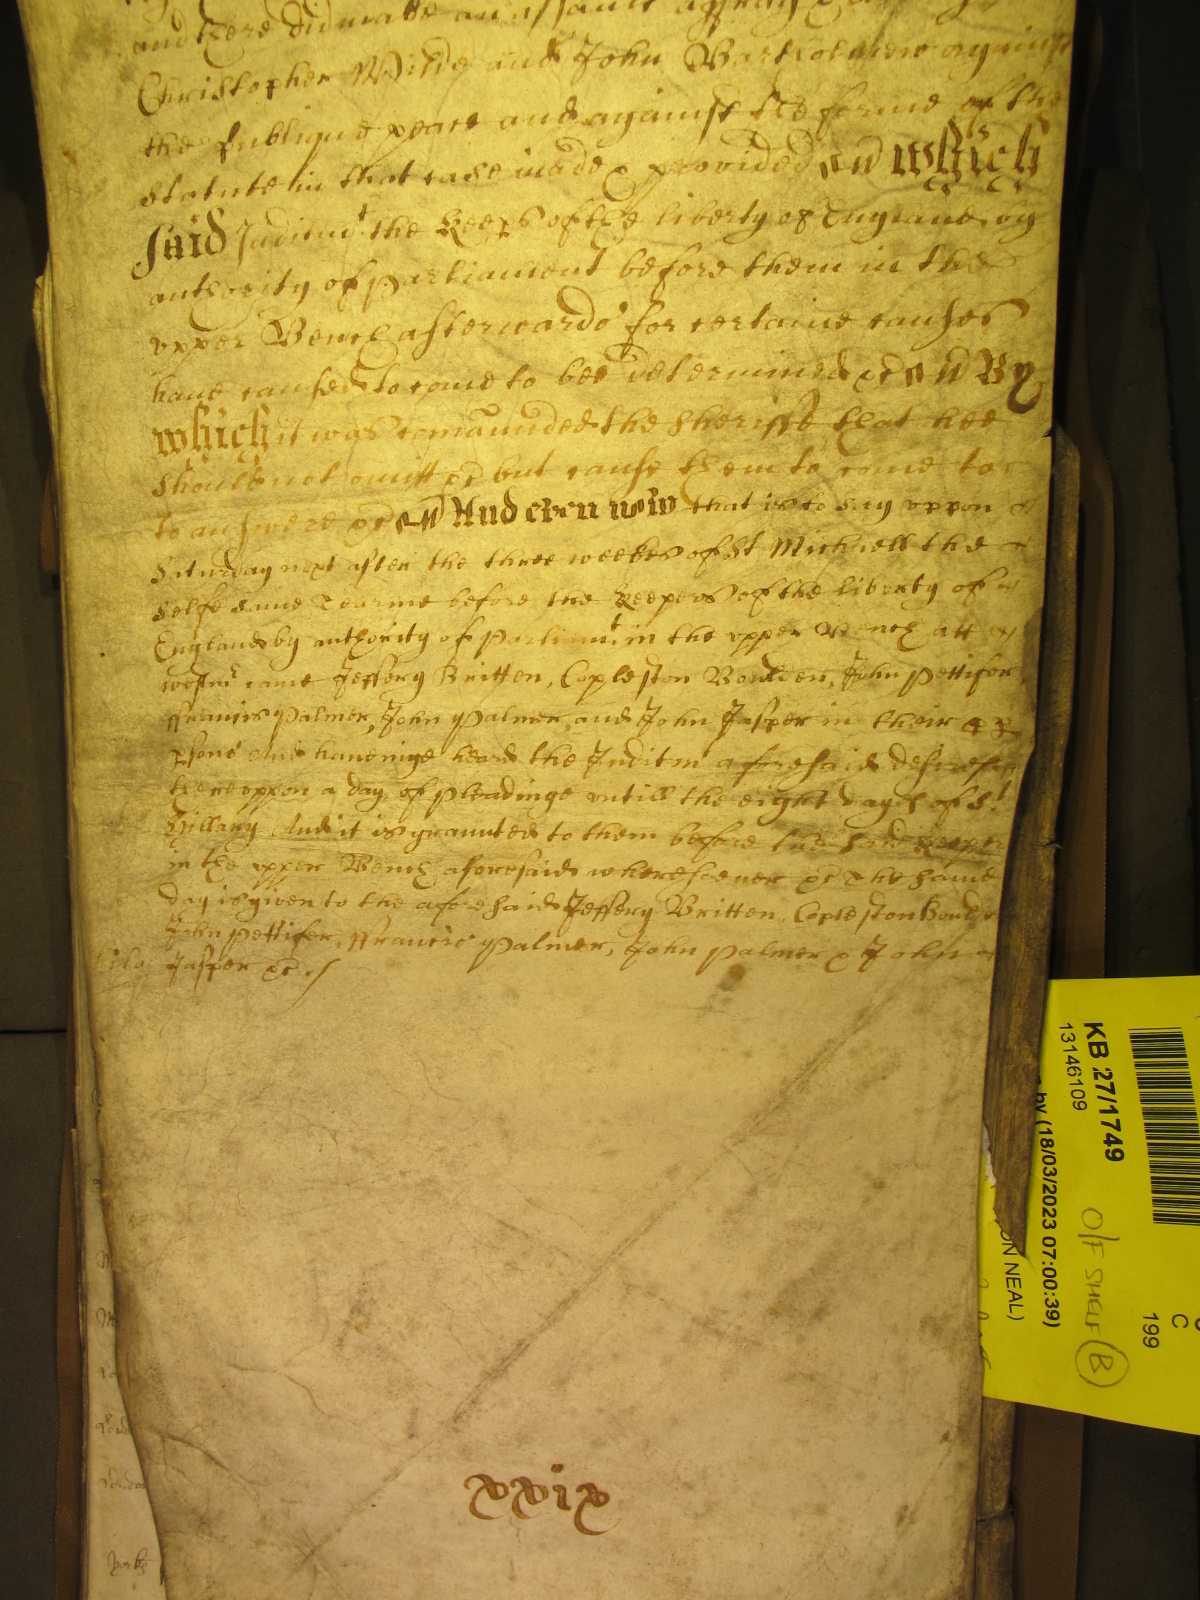 and there did make an assault affray
Christopher Wilde and John Bartholmew against
the publique peace and against the forme of the
statute in that case made & provided And which
said Inditmt the Keeprs of the liberty of England by
authority of Parliament before them in the
upper Bench afterwards for certaine causes
have caused to come to bee determined &c And By
which it was comaunded the Sheriffe that hee
should not omitt &c but cause them to come to
to answere &c And And even now that is to say uppon
Saturday next after the three weekes of St Michaell the
selfe same Tearme before the Keepers of the liberty of
England by authority of Parliamt in the upper Bench att
westmr came Jeffery Britten, Copleston Boulden, John Pettifer
ffrancis Palmer, John Palmer, and John Jasper in their
psons And haveinge heard the Inditm aforesaid desire
thereuppon a day of pleadinge untill the eight dayes of St
Hillary And it is graunted to them before the said Keeper
in the upper Bench aforesaid wheresoever &c The same
day is given to the aforesaid Jeffery Britten, Copleston Bould
John Pettifer, ffrancis Palmer, John Palmer & John
Jasper &c
xxix
KB 27/1749
13146109
by (18/03/2023 07:00:39)
ON NEAL)
O/F SHELF B
C
199
Yorks